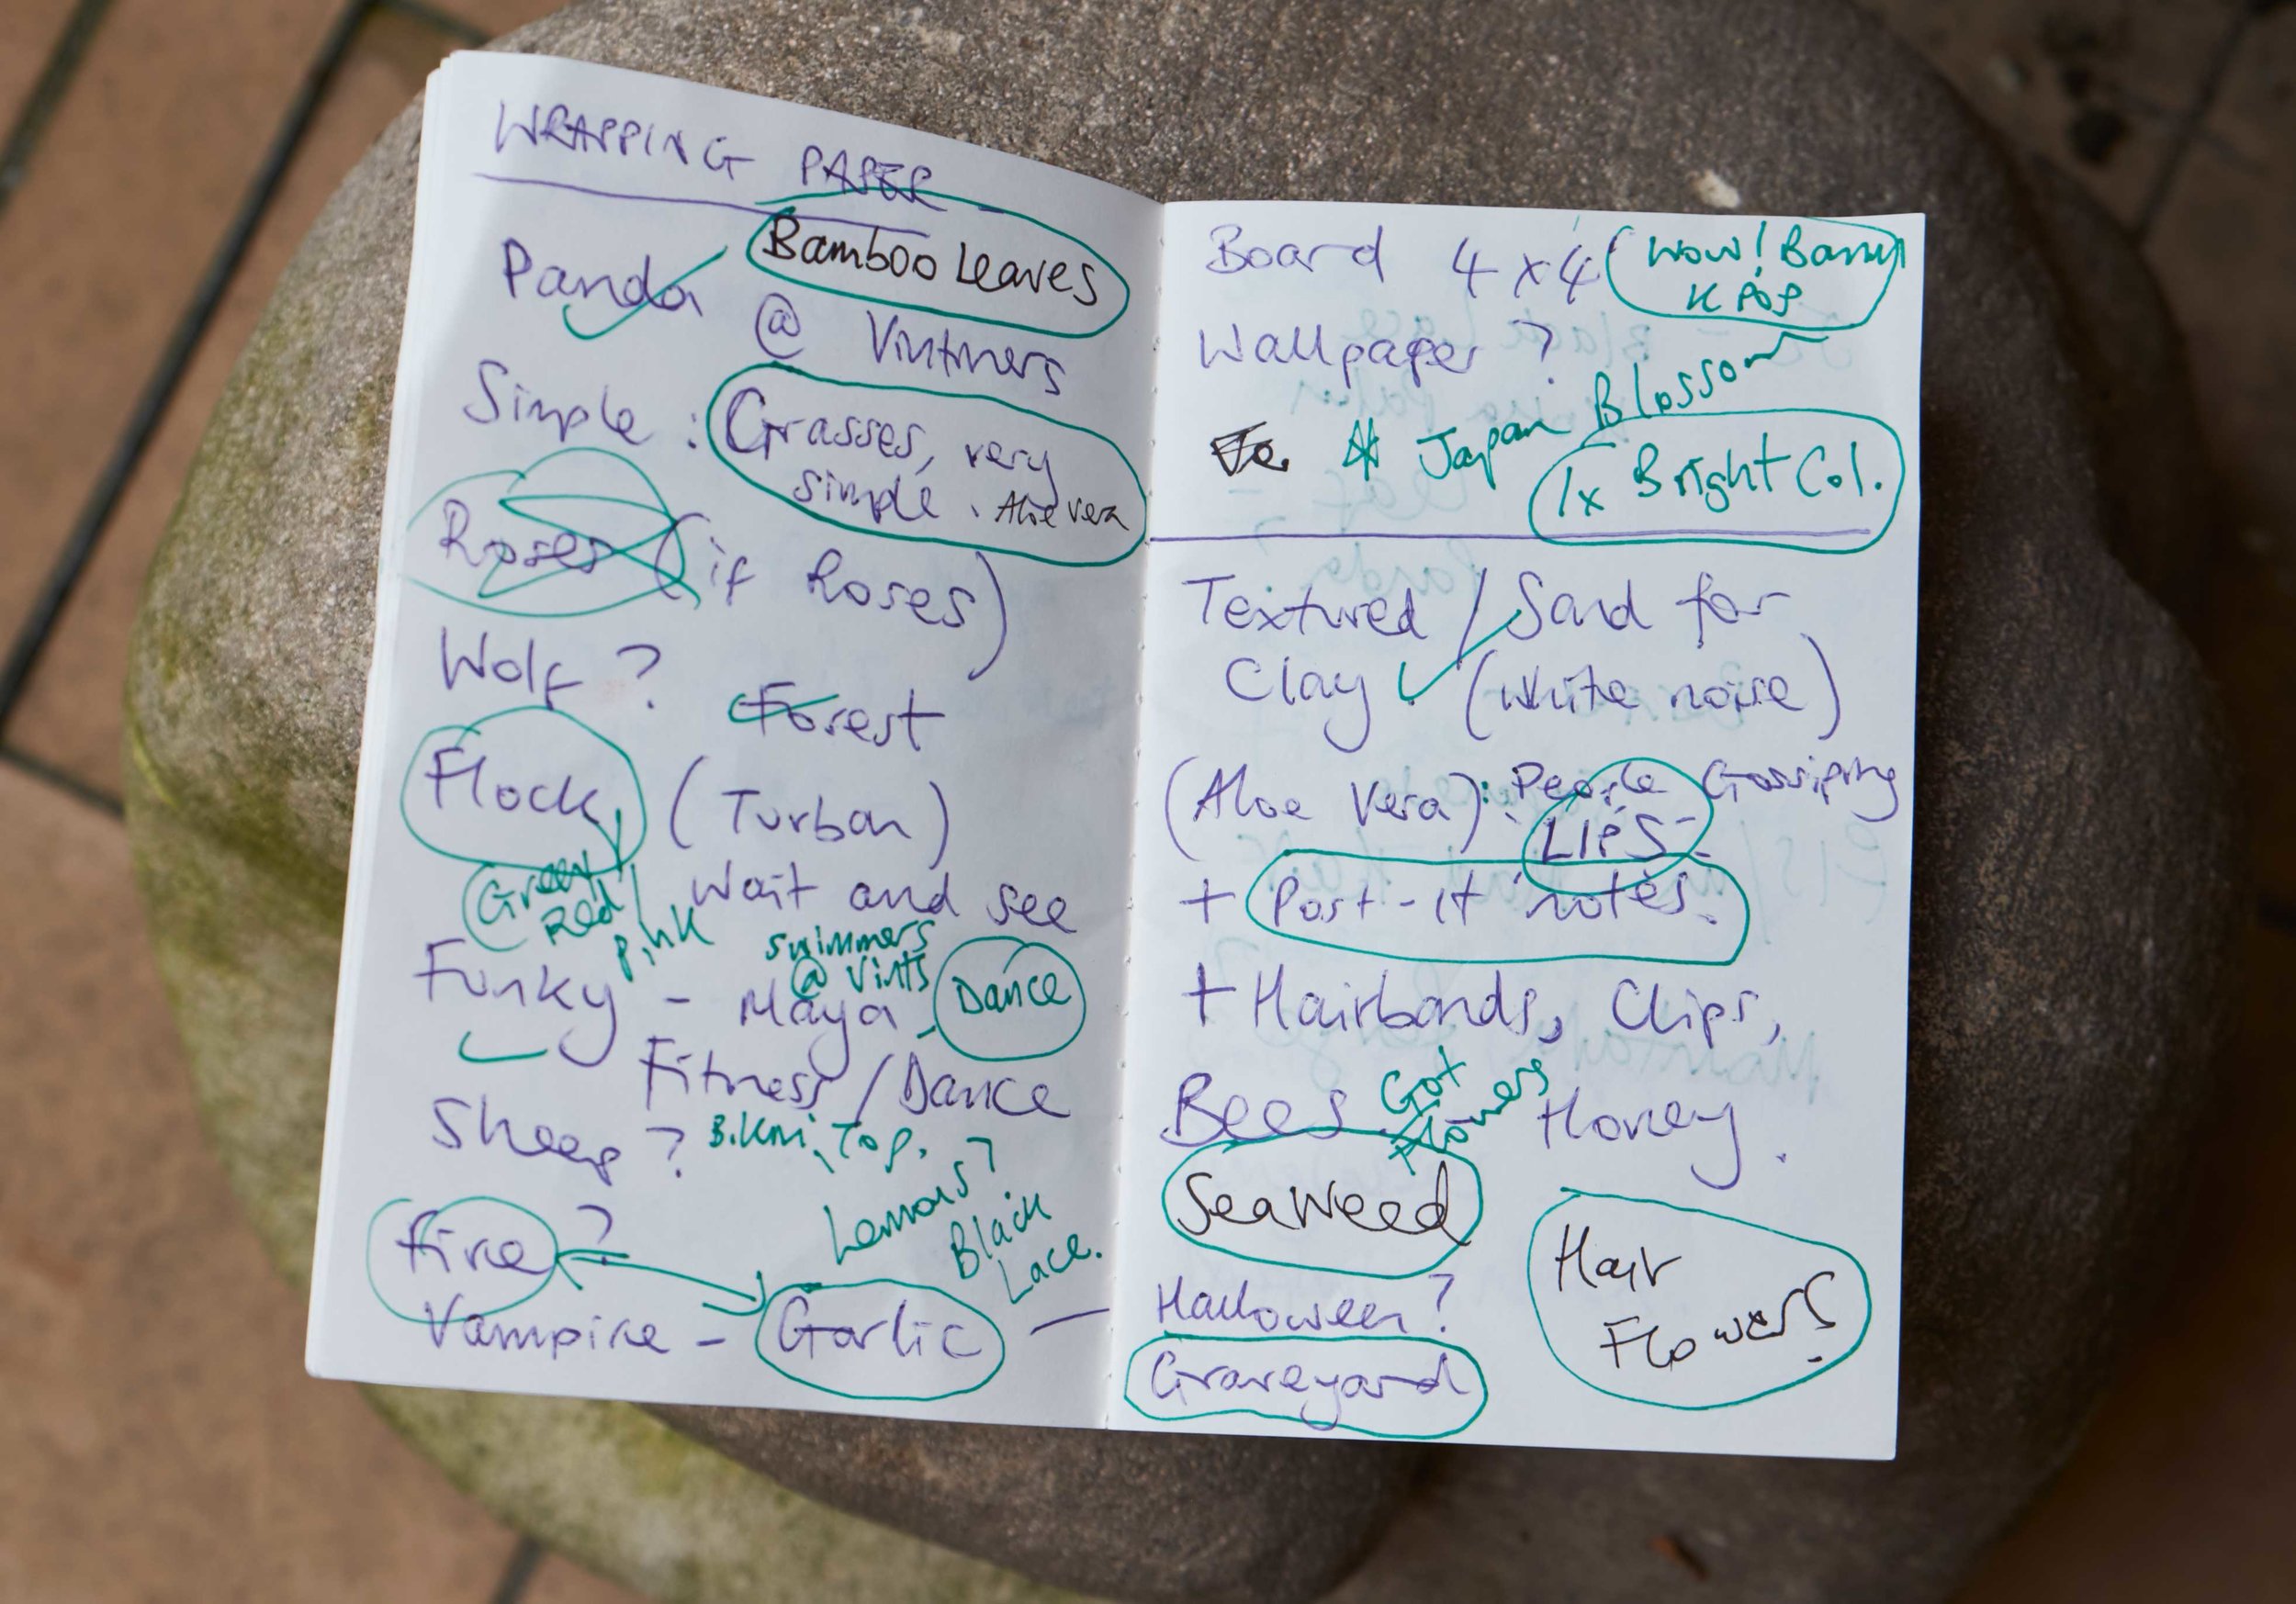 WRAPPING PAPER
Bamboo Leaves
Panda @ Vintners
Simple : Grasses, very
simple. Aloe vera
Roses (if Roses)
Wolf ?
Forest
Flock (Turban)
Green
Red
Pink
Wait and see
swimmers
@ Vints
Funky - Maya
Dance
Fitness / Dance
Sheep ?
Bikini Top.
Lemons?
Black
Lace.
Fire ?
Vampire - Garlic
Board 4 x 4
Wow! Barry
K POP
Wallpaper ?
Japan Blossom
1x Bright Col.
Textured / Sand for
Clay (White noise)
(Aloe Vera) : People Gossiping
LIPS
+ Post-it notes.
+ Hairbands, Clips,
Bees Honey.
Got
Flowers
Seaweed
Hair
Flowers
Halloween?
Graveyard